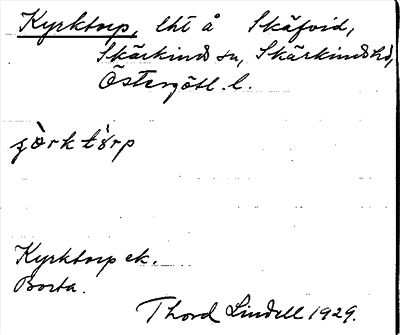 Kyrktorp, lht å Skäfvid,
Skärkinds sn, Skärkinds hd,
Östergötl. l.
Kyrktorp ek.
Borta.
Thord Lindell 1929.